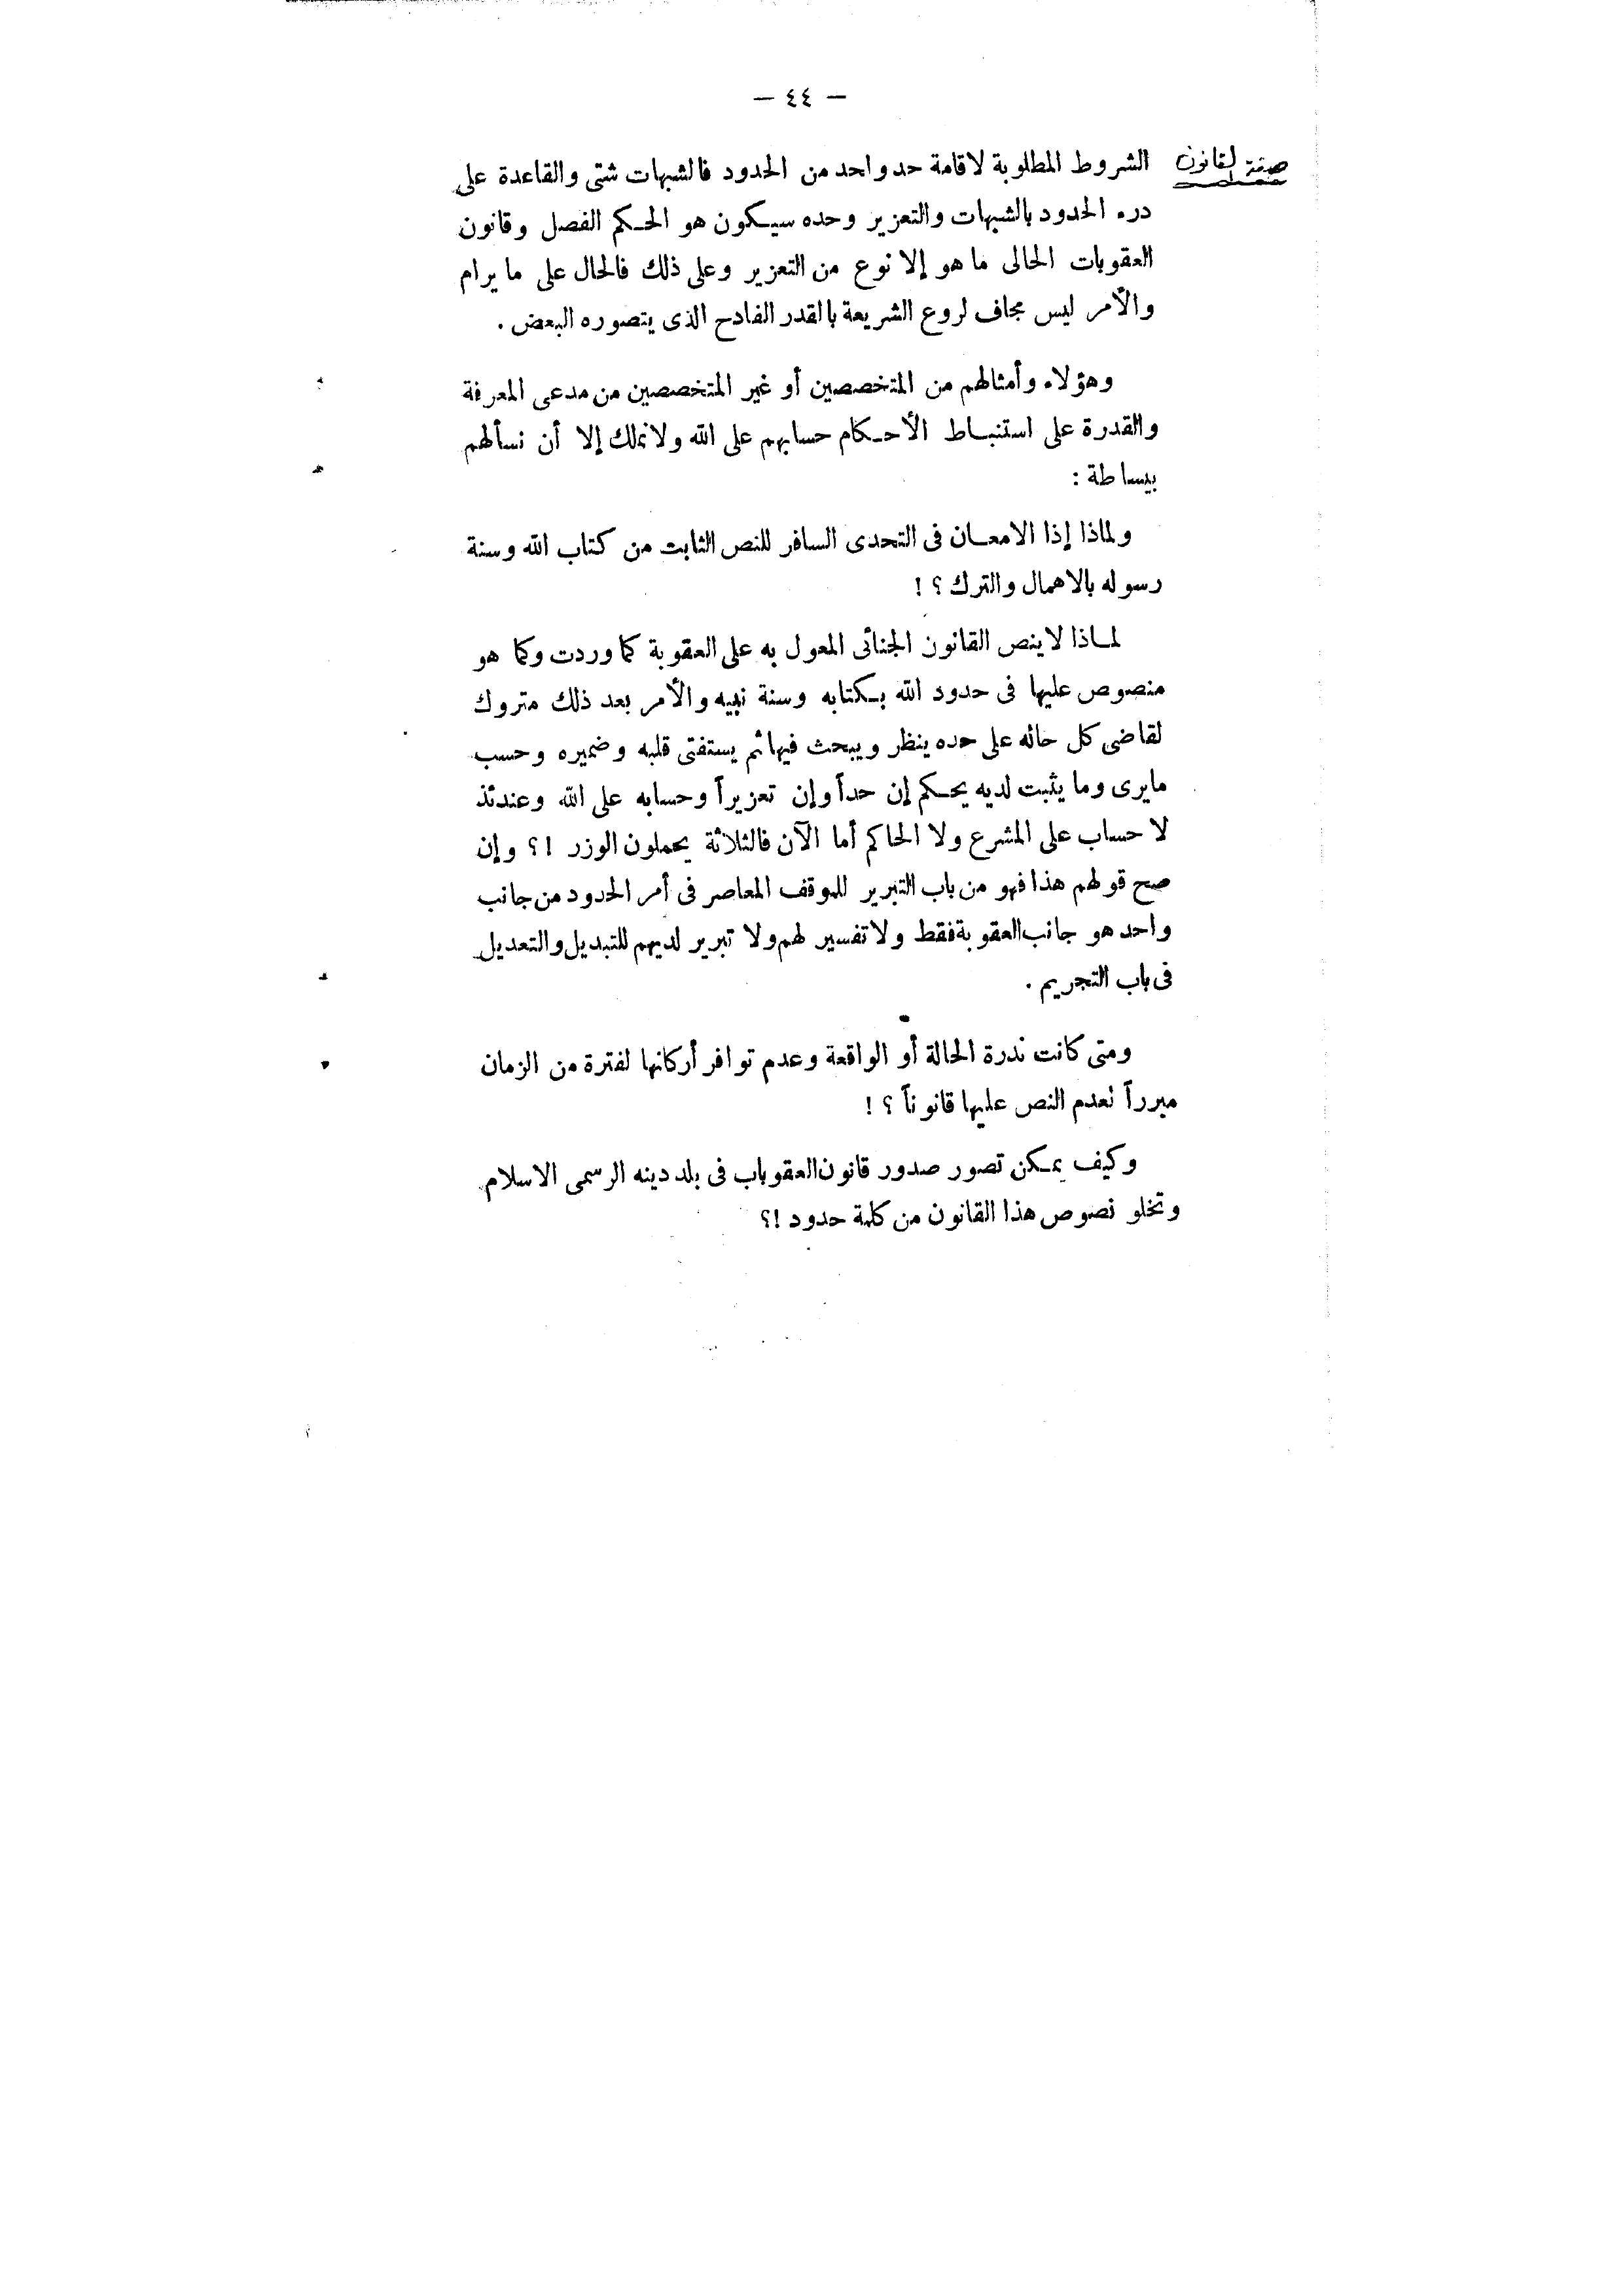 — ٤٤ —
القانون
الشروط المطلوبة لاقامة حد واحد من الحدود فالشبهات شتى والقاعدة على
درء الحدود بالشبهات والتعزير وحده سيكون هو الحكم الفصل وقانون
العقوبات الحالى ما هو إلا نوع من التعزير وعلى ذلك فالحال على ما يرام
والأمر ليس مجاف لروع الشريعة بالقدر الفادح الذى يتصوره البعض .
وهؤلاء وأمثالهم من المتخصصين أو غير المتخصصين من مدعى المعرفة
والقدرة على استنباط الأحكام حسابهم على الله ولا نملك إلا أن نسألهم
ببساطة :
ولماذا إذا الامعان فى التحدى السافر للنص الثابت من كتاب الله وسنة
رسوله بالاهمال والترك ؟ !
لماذا لا ينص القانون الجنائى المعول به على العقوبة كما وردت وكما هو
منصوص عليها فى حدود الله بكتابه وسنة نبيه والأمر بعد ذلك متروك
لقاضى كل حاله على حده ينظر ويبحث فيها ثم يستفتى قلبه وضميره وحسب
مايرى وما يثبت لديه يحكم إن حداً وإن تعزيراً وحسابه على الله وعندئذ
لا حساب على المشرع ولا الحاكم أما الآن فالثلاثة يحملون الوزر !؟ وإن
صح قولهم هذا فهو من باب التبرير للموقف المعاصر فى أمر الحدود من جانب
واحد هو جانب العقوبة فقط ولا تفسير لهم ولا تبرير لديهم للتبديل والتعديل
فى باب التجريم .
ومتى كانت ندرة الحالة أو الواقعة وعدم توافر أركانها لفترة من الزمان
مبرراً لعدم النص عليها قانوناً ؟ !
وكيف يمكن تصور صدور قانون العقوباب فى بلد دينه الرسمى الاسلام
وتخلو نصوص هذا القانون من كلمة حدود !؟